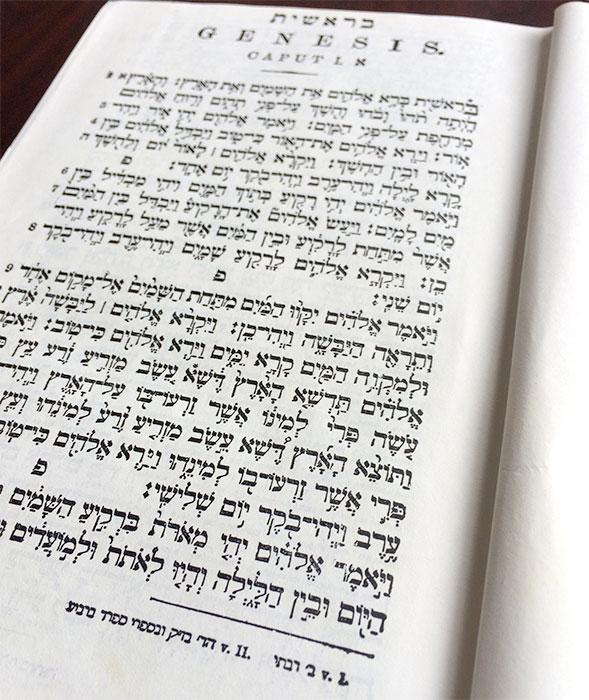 בראשית
GENESIS.
CAPUT I. א
בְּרֵאשִׁית בָּרָא אֱלֹהִים אֵת הַשָּׁמַיִם וְאֵת הָאָרֶץ׃ וְהָאָרֶץ א 2
הָיְתָה תֹהוּ וָבֹהוּ וְחֹשֶׁךְ עַל־פְּנֵי תְהוֹם וְרוּחַ אֱלֹהִים
מְרַחֶפֶת עַל־פְּנֵי הַמָּיִם׃ וַיֹּאמֶר אֱלֹהִים יְהִי אוֹר וַיְהִי־ 3
אוֹר׃ וַיַּרְא אֱלֹהִים אֶת־הָאוֹר כִּי־טוֹב וַיַּבְדֵּל אֱלֹהִים בֵּין 4
הָאוֹר וּבֵין הַחֹשֶׁךְ׃ וַיִּקְרָא אֱלֹהִים ׀ לָאוֹר יוֹם וְלַחֹשֶׁךְ ה
קָרָא לָיְלָה וַיְהִי־עֶרֶב וַיְהִי־בֹקֶר יוֹם אֶחָד׃ פ
וַיֹּאמֶר אֱלֹהִים יְהִי רָקִיעַ בְּתוֹךְ הַמָּיִם וִיהִי מַבְדִּיל בֵּין 6
מַיִם לָמָיִם׃ וַיַּעַשׂ אֱלֹהִים אֶת־הָרָקִיעַ וַיַּבְדֵּל בֵּין הַמַּיִם 7
אֲשֶׁר מִתַּחַת לָרָקִיעַ וּבֵין הַמַּיִם אֲשֶׁר מֵעַל לָרָקִיעַ וַיְהִי־
כֵן׃ וַיִּקְרָא אֱלֹהִים לָרָקִיעַ שָׁמָיִם וַיְהִי־עֶרֶב וַיְהִי־בֹקֶר 8
יוֹם שֵׁנִי׃ פ
וַיֹּאמֶר אֱלֹהִים יִקָּווּ הַמַּיִם מִתַּחַת הַשָּׁמַיִם אֶל־מָקוֹם אֶחָד 9
וְתֵרָאֶה הַיַּבָּשָׁה וַיְהִי־כֵן׃ וַיִּקְרָא אֱלֹהִים ׀ לַיַּבָּשָׁה אֶרֶץ
וּלְמִקְוֵה הַמַּיִם קָרָא יַמִּים וַיַּרְא אֱלֹהִים כִּי־טוֹב׃ וַיֹּאמֶר
אֱלֹהִים תַּדְשֵׁא הָאָרֶץ דֶּשֶׁא עֵשֶׂב מַזְרִיעַ זֶרַע עֵץ
עֹשֶׂה פְּרִי לְמִינוֹ אֲשֶׁר זַרְעוֹ־בוֹ עַל־הָאָרֶץ וַיְהִי־
וַתּוֹצֵא הָאָרֶץ דֶּשֶׁא עֵשֶׂב מַזְרִיעַ זֶרַע לְמִינֵהוּ וְעֵץ
פְּרִי אֲשֶׁר זַרְעוֹ־בוֹ לְמִינֵהוּ וַיַּרְא אֱלֹהִים כִּי־טוֹב
עֶרֶב וַיְהִי־בֹקֶר יוֹם שְׁלִישִׁי׃ פ
וַיֹּאמֶר אֱלֹהִים יְהִי מְאֹרֹת בִּרְקִיעַ הַשָּׁמַיִם
הַיּוֹם וּבֵין הַלָּיְלָה וְהָיוּ לְאֹתֹת וּלְמוֹעֲדִים
v. 1. ב׳ רבתי v. 11. ובספרי ספרד ברביע